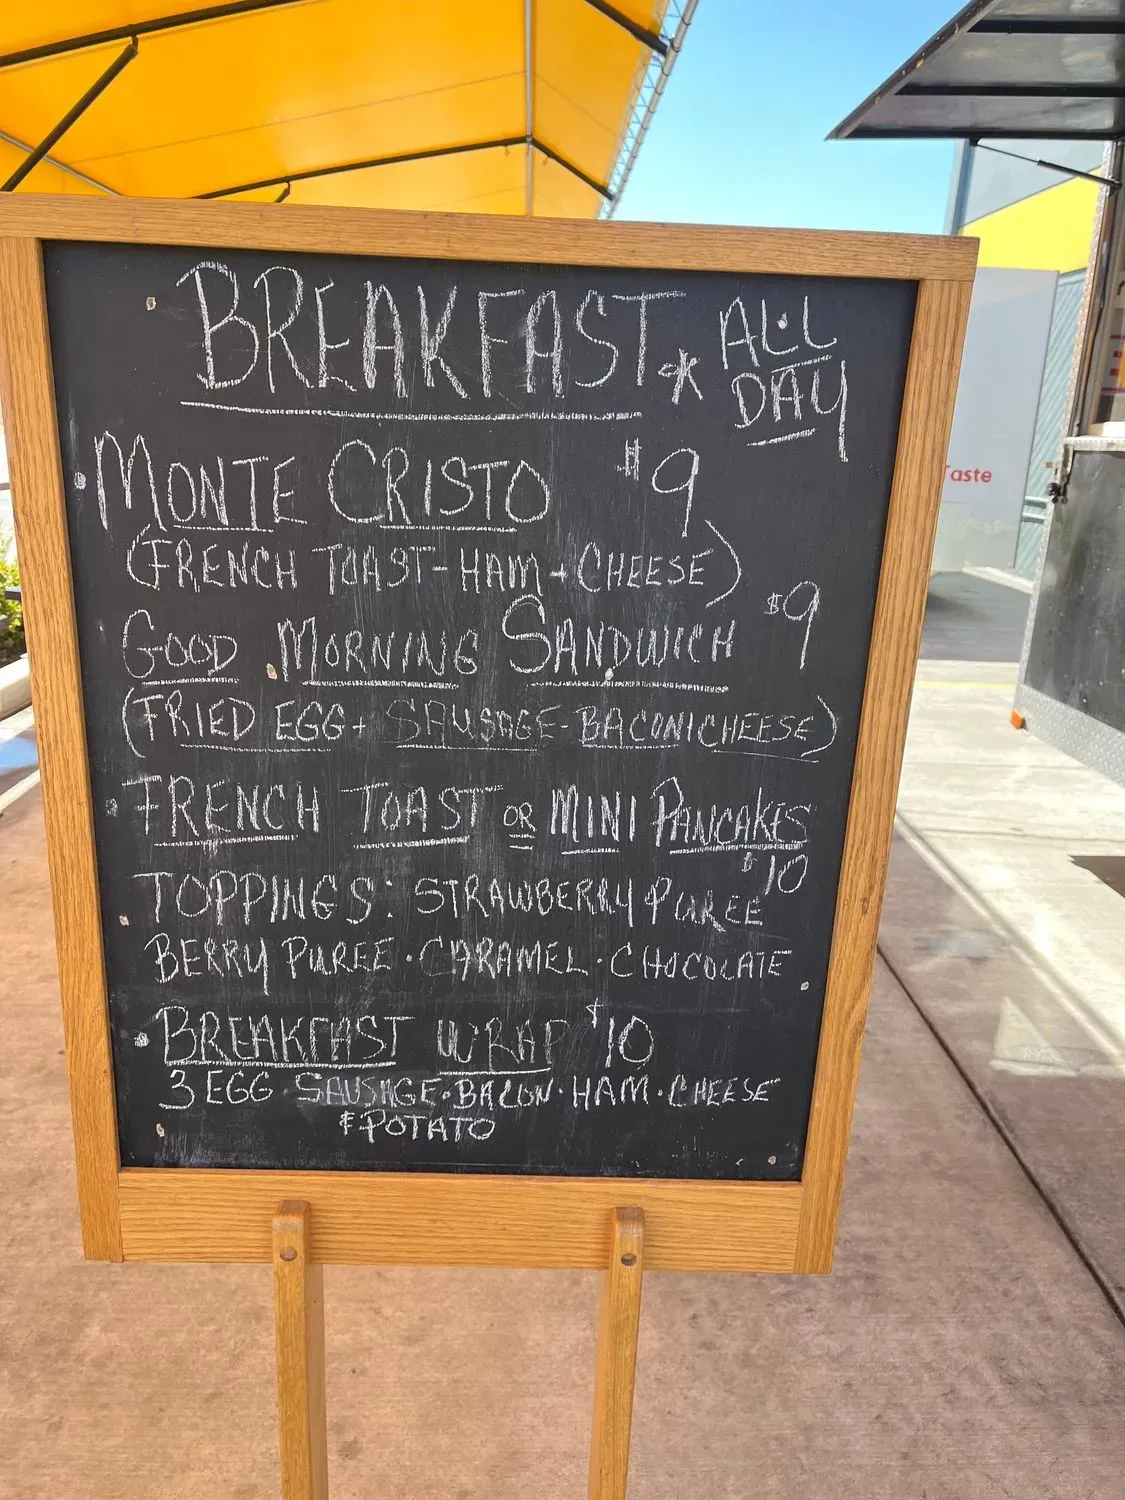 BREAKFAST * ALL DAY
MONTE CRISTO $9
(FRENCH TOAST-HAM+CHEESE)
GOOD MORNING SANDWICH $9
(FRIED EGG+ SAUSAGE-BACON|CHEESE)
FRENCH TOAST OR MINI PANCAKES
$10
TOPPINGS: STRAWBERRY PUREE
BERRY PUREE · CARAMEL · CHOCOLATE
BREAKFAST WRAP $10
3 EGG SAUSAGE·BACON·HAM·CHEESE
& POTATO
Taste